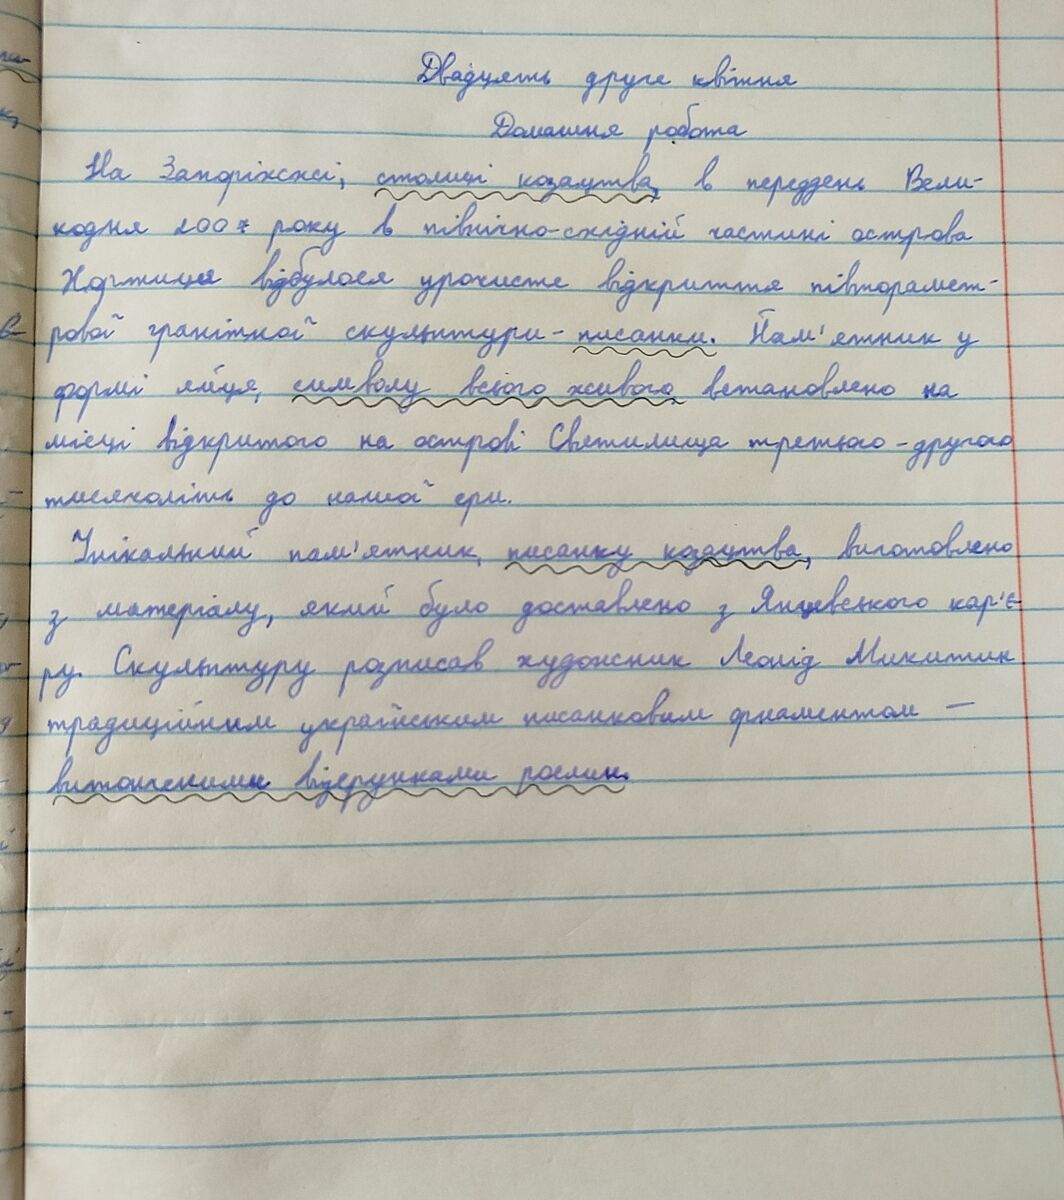 Двадцять друге квітня
Домашня робота
На Запоріжжі, столиці козацтва, в переддень Вели-
кодня 2007 року в північно-східній частині острова
Хортиця відбулося урочисте відкриття півторамет-
рової гранітної скульптури-писанки. Пам'ятник у
формі яйця, символу всього живого встановлено на
місці відкритого на острові Святилища третього-другого
тисячоліть до нашої ери.
Унікальний пам'ятник, писанку козацтва, виготовлено
з матеріалу, який було доставлено з Янцевського кар'є-
ру. Скульптуру розписав художник Леонід Микитин
традиційним українським писанковим орнаментом –
витонченими візерунками рослин.